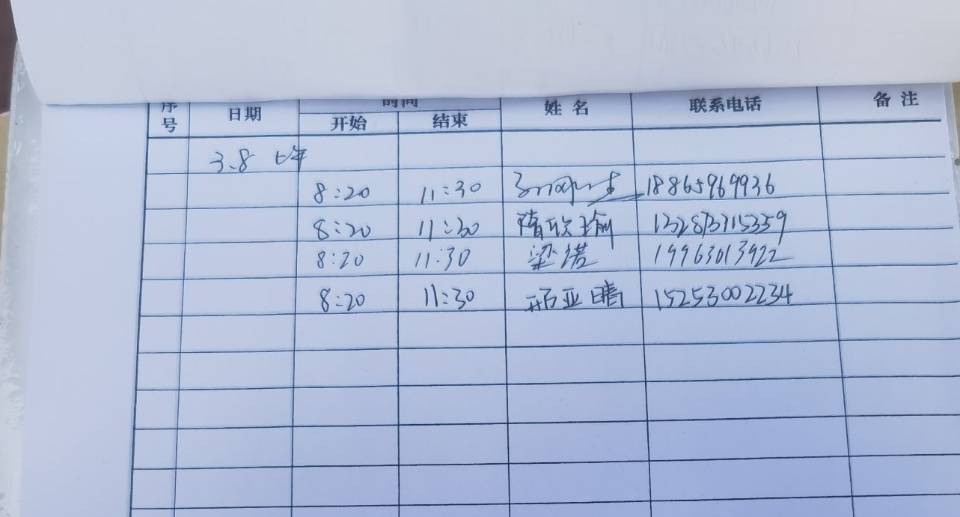 序号 日期 时间 姓名 联系电话 备注
开始 结束
3.8 上午
8:20 11:30 18865969936
8:20 11:30 隋欣瑜
8:20 11:30 梁诺 19963013922
8:20 11:30 邢亚晴 15253002234